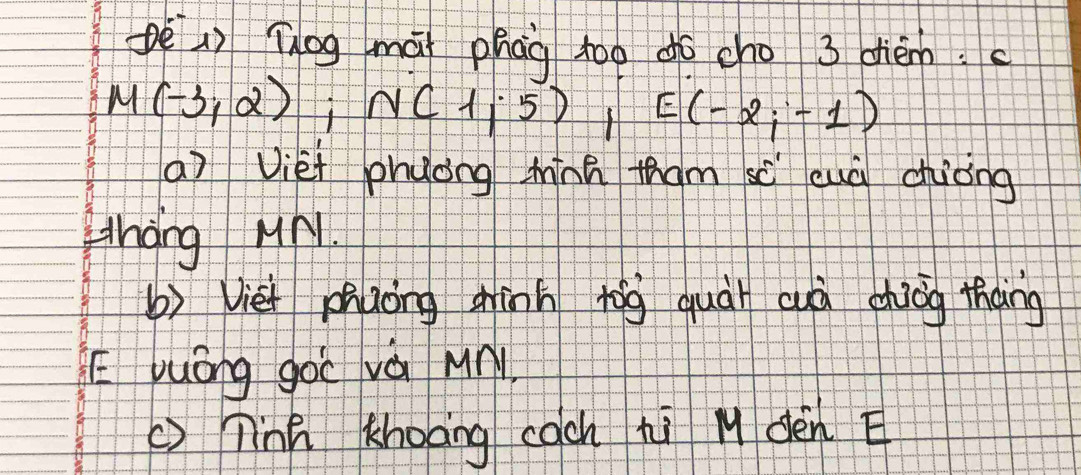 Đề 1) Trog mặt phẳg toạ độ cho 3 điểm : c
M(-3; 2) ; N( 1; 5) ; E(-2; -1)
a) Viết phương trình tham số của đường
thẳng MN.
b) Viết phương trình tổg quát của đườg thẳng
E vuông góc với MN.
c) Tính khoảng cách từ M đến E